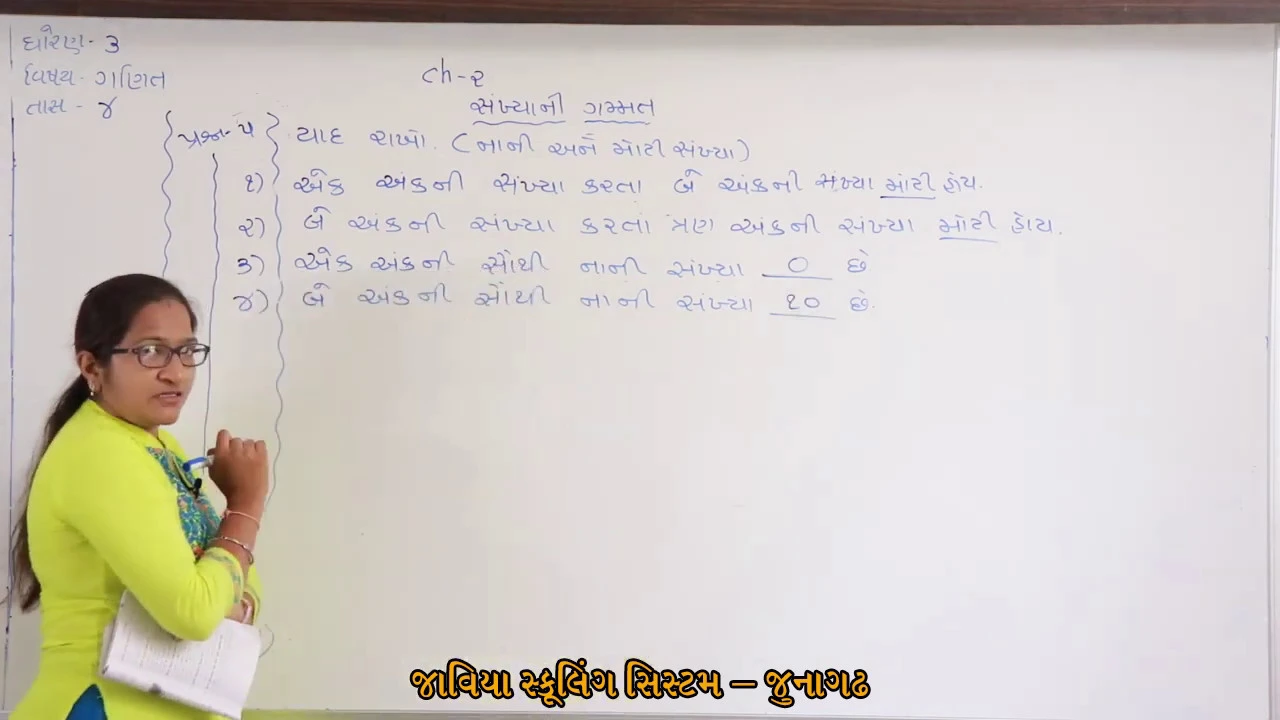 ધોરણ- ૩
વિષય- ગણિત
તાસ - ૪
ch-૨
સંખ્યાની ગમ્મત
પ્રશ્ન- ૫ યાદ રાખો. (નાની અને મોટી સંખ્યા)
૧) એક અંકની સંખ્યા કરતા બે અંકની સંખ્યા મોટી હોય.
૨) બે અંકની સંખ્યા કરતાં ત્રણ અંકની સંખ્યા મોટી હોય.
૩) એક અંકની સૌથી નાની સંખ્યા ૦ છે
૪) બે અંકની સૌથી નાની સંખ્યા ૧૦ છે.
જાવિયા સ્કૂલિંગ સિસ્ટમ – જુનાગઢ